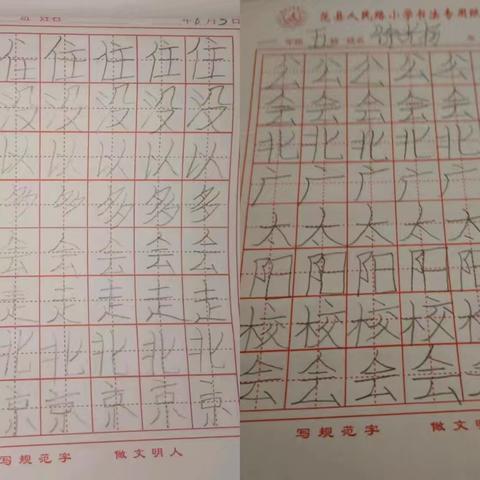 班 姓名 年6月3日
住住住住住
没没没没没
以以以以以
多多多多多
会会会会会
走走走走走
北北北北北
京京京京京
写规范字 做文明人
范县人民路小学书法专用
一年级 五班 姓名
公公公公公
会会会会会
北北北北北
广广广广广
太太太太太
阳阳阳阳阳
校校校校校
会会会会会
写规范字 做文明